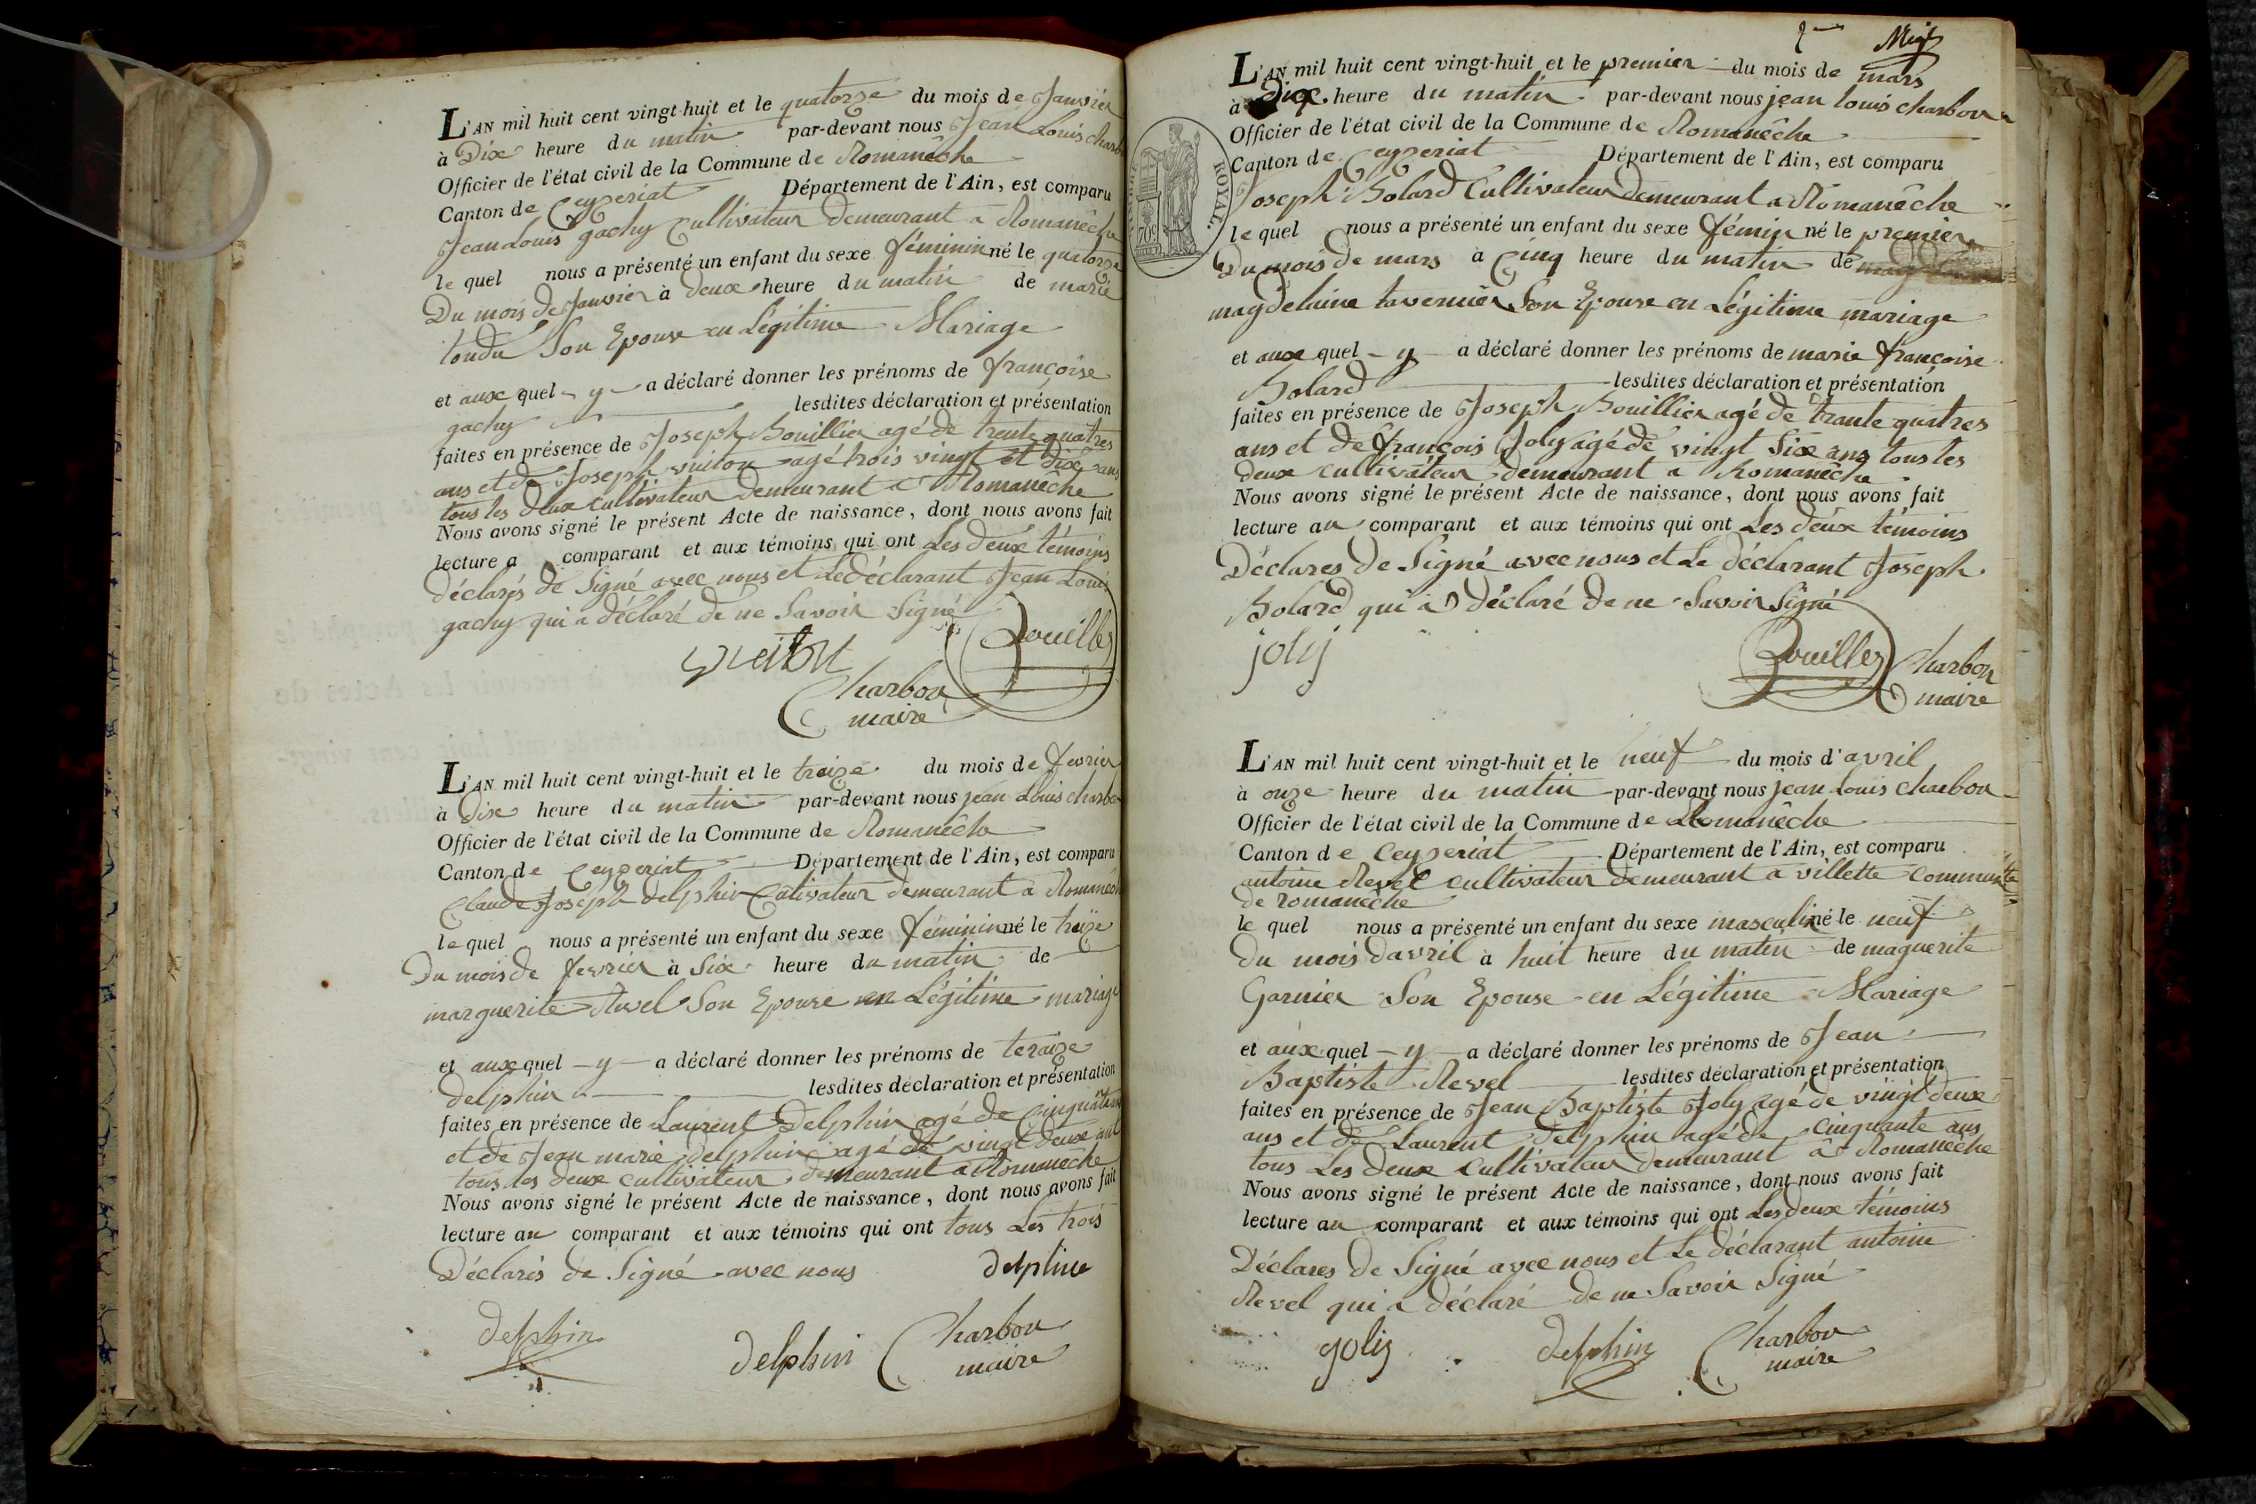 L'AN mil huit cent vingt-huit et le quatorze du mois de Janvier
à Dix heure du matin par-devant nous Jean Louis charbon
Officier de l'état civil de la Commune de Romanêche
Canton de Ceyzeriat Département de l'Ain, est comparu
Jean Louis gachy Cultivateur Demeurant a Romanêche
le quel nous a présenté un enfant du sexe féminin né le quatorze
Du mois de Janvier à deux heure du matin de marie
tondu Son Epouse en Légitime Mariage
et aux quel - y - a déclaré donner les prénoms de françoise
gachy lesdites déclaration et présentation
faites en présence de Joseph Bouillier agé de trente quatres
ans et de Joseph vuiton agé trois vingt et dix ans
tous les deux cultivateur demeurant a Romanêche
Nous avons signé le présent Acte de naissance, dont nous avons fait
lecture a comparant et aux témoins qui ont Les deux témoins
déclarés de Signé avec nous et Le déclarant Jean Louis
gachy qui a déclaré de ne Savoir Signé
vuiton Bouiller
Charbon
maire
L'AN mil huit cent vingt-huit et le treize du mois de fevrier
à dix heure du matin par-devant nous jean Louis charbon
Officier de l'état civil de la Commune de Romanêche
Canton de Ceyzeriat Département de l'Ain, est comparu
Claude Joseph delphin Cultivateur demeurant à Romanêche
le quel nous a présenté un enfant du sexe féminin né le treize
Du mois de fevrier à Six heure du matin de
marguerite Revel Son Epouse en Légitime mariage
et aux quel - y - a déclaré donner les prénoms de teraize
delphin lesdites déclaration et présentation
faites en présence de Laurent Delphin agé de Cinquante
et de Jean marie delphin agé de vingt deux ans
tous les deux cultivateur demeurant a Romanêche
Nous avons signé le présent Acte de naissance, dont nous avons fait
lecture au comparant et aux témoins qui ont tous Les trois
Déclarés de Signé avec nous delphin
delphin delphin Charbon
maire
L'AN mil huit cent vingt-huit et le premier du mois de mars
à Dix heure du matin par-devant nous jean louis charbon
Officier de l'état civil de la Commune de Romanêche
Canton de Ceyzeriat Département de l'Ain, est comparu
Joseph Bolard Cultivateur demeurant a Romanêche
le quel nous a présenté un enfant du sexe fémin né le premier
Du mois de mars à Cinq heure du matin de
magdelaine tavernier Son Epouse en Légitime mariage
et aux quel - y - a déclaré donner les prénoms de marie françoise
Bolard lesdites déclaration et présentation
faites en présence de Joseph Bouillier agé de trante quatres
ans et de françois Joly agé de vingt Six ans tous les
deux cultivateur demeurant a Romanêche
Nous avons signé le présent Acte de naissance, dont nous avons fait
lecture au comparant et aux témoins qui ont Les deux témoins
Déclares de Signé avec nous et Le déclarant Joseph
Bolard qui a déclaré de ne Savoir Signé
joly Bouiller Charbon
maire
L'AN mil huit cent vingt-huit et le neuf du mois d'avril
à onze heure du matin par-devant nous jean Louis charbon
Officier de l'état civil de la Commune de Romanêche
Canton de Ceyzeriat Département de l'Ain, est comparu
antoine Revel cultivateur demeurant a villette Commune
de romanêche
le quel nous a présenté un enfant du sexe masculin né le neuf
du mois davril à huit heure du matin de maguerite
Garnier Son Epouse en Légitime Mariage
et aux quel - y - a déclaré donner les prénoms de Jean
Baptiste Revel lesdites déclaration et présentation
faites en présence de Jean Baptiste Joly agé de vingt deux
ans et de Laurent delphin agé de cinquante ans
tous Les deux Cultivateur demeurant à Romanêche
Nous avons signé le présent Acte de naissance, dont nous avons fait
lecture au comparant et aux témoins qui ont Les deux témoins
Déclares de Signé avec nous et Le déclarant antoine
Revel qui a déclaré de ne Savoir Signé
joly delphin Charbon
maire